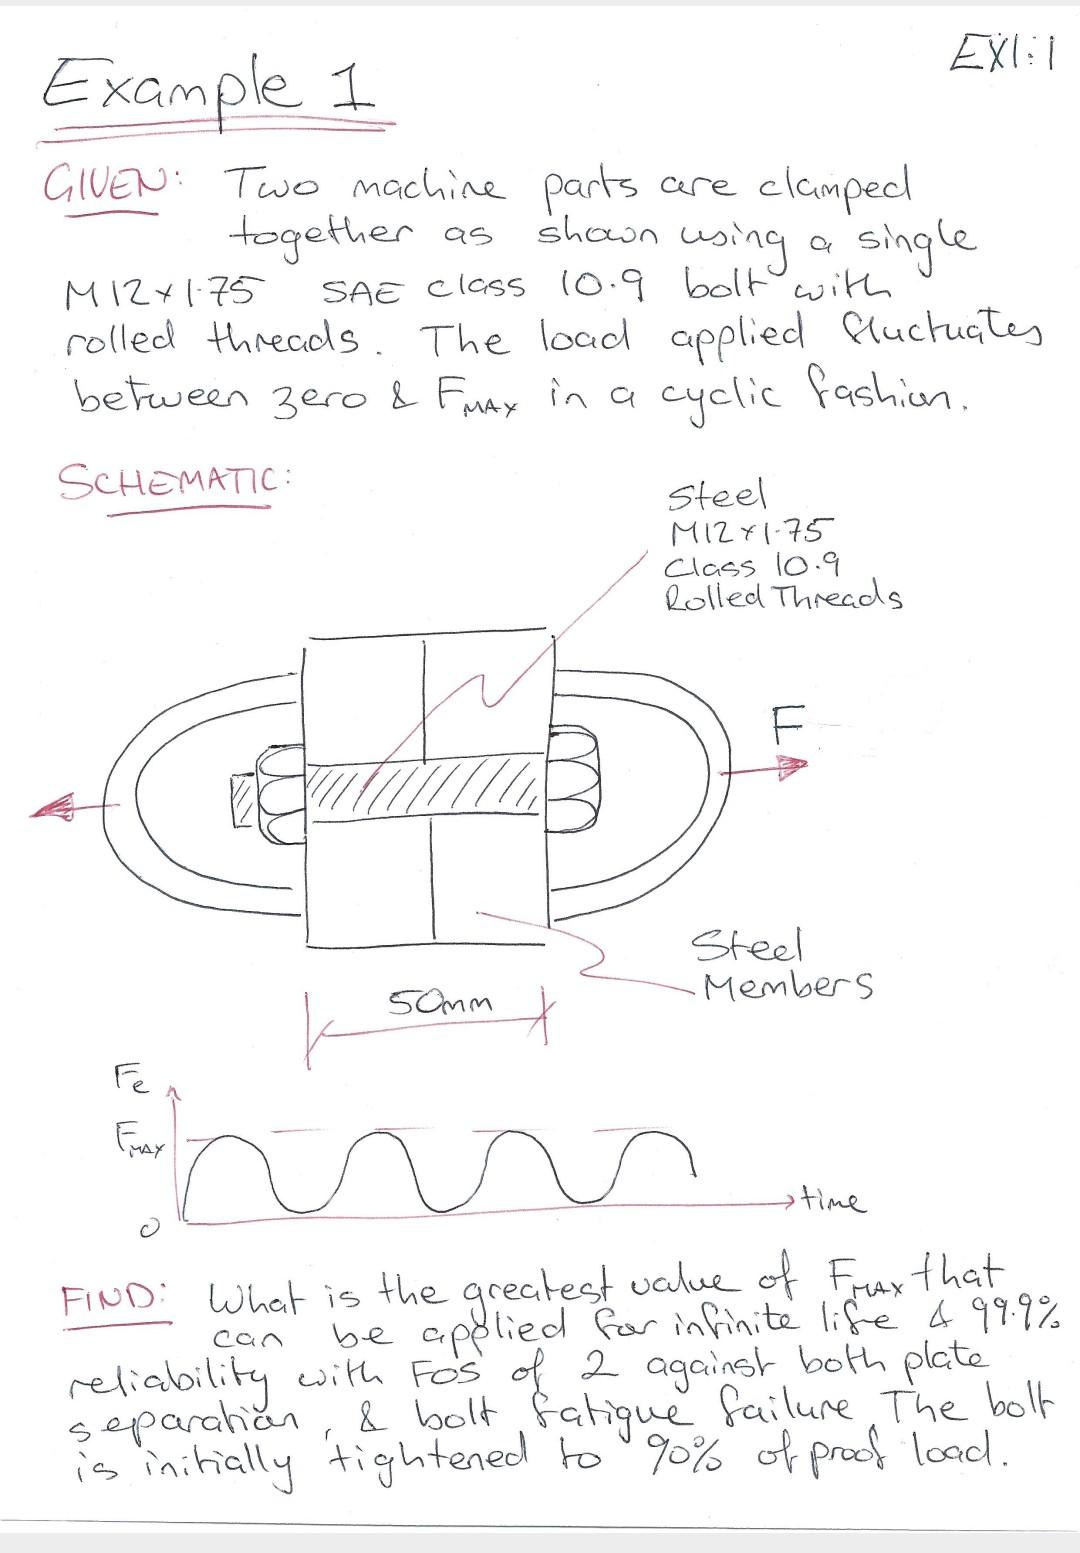 EX1:1
Example 1
GIVEN: Two machine parts are clamped
together as shown using a single
M12x1.75 SAE class 10.9 bolt with
rolled threads. The load applied fluctuates
between zero & FMAX in a cyclic fashion.
SCHEMATIC:
Steel
M12x1.75
Class 10.9
Rolled Threads
F
Steel
Members
50mm
Fe
FMAX
0
time
FIND: What is the greatest value of FMAX that
can be applied for infinite life & 99.9%
reliability with FOS of 2 against both plate
separation, & bolt fatigue failure. The bolt
is initially tightened to 90% of proof load.